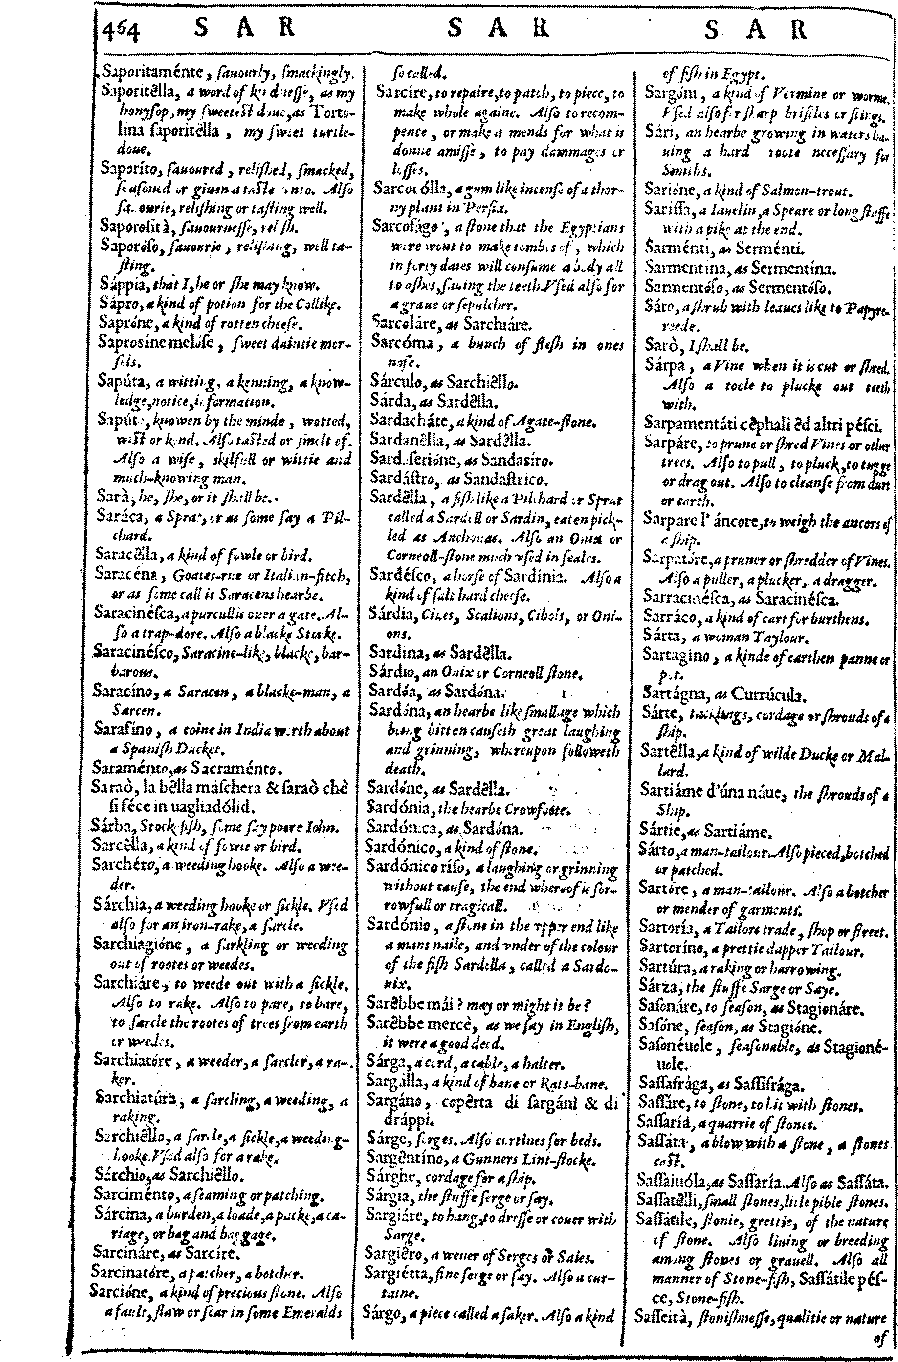 464 S A R S A R S A R
Saporitaménte, sauourly, smackingly.
Saporitélla, a word of kindnesse, as my
honysop, my sweetest doue, as Torto-
lina saporitélla, my sweet turtle-
doue.
Saporíto, sauoured, relished, smacked,
seasoned or giuen a taste vnto. Also
sauourie, relishing or tasting well.
Saporosità, sauourinesse, relish.
Saporóso, sauourie, relishing, well ta-
sting.
Sáppia, that I, he or she may know.
Sápro, a kind of potion for the Collike.
Sapróne, a kind of rotten cheese.
Saprosine melóse, sweet daintie mor-
sels.
Sapúta, a witting, a kenning, a know-
ledge, notice, information.
Sapúto, knowen by the minde, wotted,
wist or kend. Also tasted or smelt of.
Also a wise, skilfull or wittie and
much-knowing man.
Sarà, he, she, or it shall be.
Saráca, a Sprat, or as some say a Pil-
chard.
Saracélla, a kind of fowle or bird.
Saracéna, Goates-rue or Italian-fitch,
or as some call it Saracens hearbe.
Saracinésca, a purcullis ouer a gate. Al-
so a trap-dore. Also a blacke Snake.
Saracinésco, Saracine-like, blacke, bar-
barous.
Saracíno, a Saracen, a blacke-man, a
Sarcen.
Sarafíno, a coine in India worth about
a Spanish Ducket.
Saraménto, as Sacraménto.
Saraò, la bélla máschera & saraò chè
si féce in uagliadólid.
Sárba, Stock-fish, some say poore Iohn.
Sarcélla, a kind of fowle or bird.
Sarchéro, a weeding hooke. Also a wee-
der.
Sárchia, a weeding hooke or sickle. Vsed
also for an iron-rake, a sarcle.
Sarchiagióne, a sarkling or weeding
out of rootes or weedes.
Sarchiáre, to weede out with a sickle.
Also to rake. Also to pare, to bare,
to sarcle the rootes of trees from earth
or weedes.
Sarchiatóre, a weeder, a sarcler, a ra-
ker.
Sarchiatúra, a sarcling, a weeding, a
raking.
Sarchiéllo, a sarcle, a sickle, a weeding-
hooke. Vsed also for a rake.
Sárchio, as Sarchiéllo.
Sarciménto, a seaming or patching.
Sárcina, a burden, a loade, a packe, a ca-
riage, or bag and baggage.
Sarcináre, as Sarcíre.
Sarcinatóre, a patcher, a botcher.
Sarcióne, a kind of precious stone. Also
a fault, flaw or scar in some Emeralds
so called.
Sarcíre, to repaire, to patch, to piece, to
make whole againe. Also to recom-
pence, or make a mends for what is
donne amisse, to pay dammages or
losses.
Sarcocólla, a gum like incense of a thor-
ny plant in Persia.
Sarcófago, a stone that the Egyptians
were wont to make tombes of, which
in forty daies will consume a body all
to ashes, sauing the teeth. Vsed also for
a graue or sepulcher.
Sarcoláre, as Sarchiáre.
Sarcóma, a bunch of flesh in ones
nose.
Sárculo, as Sarchiéllo.
Sárda, as Sardélla.
Sardacháte, a kind of Agate-stone.
Sardanélla, as Sardélla.
Sardasserióne, as Sandasíro.
Sardástro, as Sandastríco.
Sardélla, a fish like a Pilchard or Sprat
called a Sardell or Sardin, eaten pick-
led as Anchoues. Also an Onix or
Corneoll-stone much vsed in seales.
Sardésco, a horse of Sardinia. Also a
kind of salt hard cheese.
Sárdia, Ciues, Scalions, Cibols, or Oni-
ons.
Sardína, as Sardélla.
Sárdio, an Onix or Corneoll stone.
Sardóa, as Sardóna.
Sardóna, an hearbe like smallage which
being bitten causeth great laughing
and grinning, whereupon followeth
death.
Sardóne, as Sardélla.
Sardónia, the hearbe Crowfoote.
Sardónica, as Sardóna.
Sardónico, a kind of stone.
Sardónico ríso, a laughing or grinning
without cause, the end whereof is sor-
rowfull or tragicall.
Sardónio, a stone in the vpper end like
a mans naile, and vnder of the colour
of the fish Sardella, called a Sardo-
nix.
Sarébbe mái? may or might it be?
Sarébbe mercè, as we say in English,
it were a good deed.
Sárga, a cord, a cable, a halter.
Sargálla, a kind of bane or Rats-bane.
Sargáno, copérta di sargáni & di
dráppi.
Sárge, serges. Also curtines for beds.
Sargentíno, a Gunners Lint-stocke.
Sárghe, cordage for a ship.
Sárgia, the stuffe serge or say.
Sargiáre, to hang, to dresse or couer with
Sarge.
Sargiéro, a weuer of Serges or Saies.
Sargiétta, fine serge or say. Also a cur-
taine.
Sárgo, a piece called a saker. Also a kind
of fish in Egypt.
Sargóni, a kind of Vermine or worme.
Vsed also for sharp bristles or stings.
Sári, an hearbe growing in waters ha-
uing a hard roote necessary for
Smiths.
Sarióne, a kind of Salmon-trout.
Saríssa, a Iauelin, a Speare or long staffe
with a pike at the end.
Sarménti, as Serménti.
Sarmentína, as Sermentína.
Sarmentóso, as Sermentóso.
Sáro, a shrub with leaues like to Papyr-
reede.
Sarò, I shall be.
Sárpa, a Vine when it is cut or shred.
Also a toole to plucke out teeth
with.
Sarpamentáti céphali éd altri pésci.
Sarpáre, to prune or shred Vines or other
trees. Also to pull, to pluck, to tugge
or drag out. Also to cleanse from durt
or earth.
Sarpare l' áncore, to weigh the ancors of
a ship.
Sarpatóre, a pruner or shredder of Vines.
Also a puller, a plucker, a dragger.
Sarracinésca, as Saracinésca.
Sarráco, a kind of cart for burthens.
Sárta, a woman Taylour.
Sartagíno, a kinde of earthen panne or
pot.
Sartágna, as Currúcula.
Sárte, tacklings, cordage or shrouds of a
ship.
Sartélla, a kind of wilde Ducke or Mal-
lard.
Sartiáme d'úna náue, the shrouds of a
Ship.
Sártie, as Sartiáme.
Sárto, a man-tailour. Also pieced, botched
or patched.
Sartóre, a man-tailour. Also a botcher
or mender of garments.
Sartoría, a Tailors trade, shop or street.
Sartoríno, a prettie dapper Tailour.
Sartúra, a raking or harrowing.
Sárza, the stuffe Sarge or Saye.
Sasonáre, to season, as Stagionáre.
Sasóne, season, as Stagióne.
Sasonéuole, seasonable, as Stagioné-
uole.
Sassafrága, as Sassifrága.
Sassáre, to stone, to hit with stones.
Sassaría, a quarrie of stones.
Sassáta, a blow with a stone, a stones
cast.
Sassaiuóla, as Sassaría. Also as Sassáta.
Sassatélli, small stones, little pible stones.
Sassátile, stonie, grettie, of the nature
of stone. Also liuing or breeding
among stones or grauell. Also all
manner of Stone-fish, Sassátile pés-
ce, Stone-fish.
Sasseità, stonishnesse, qualitie or nature
of